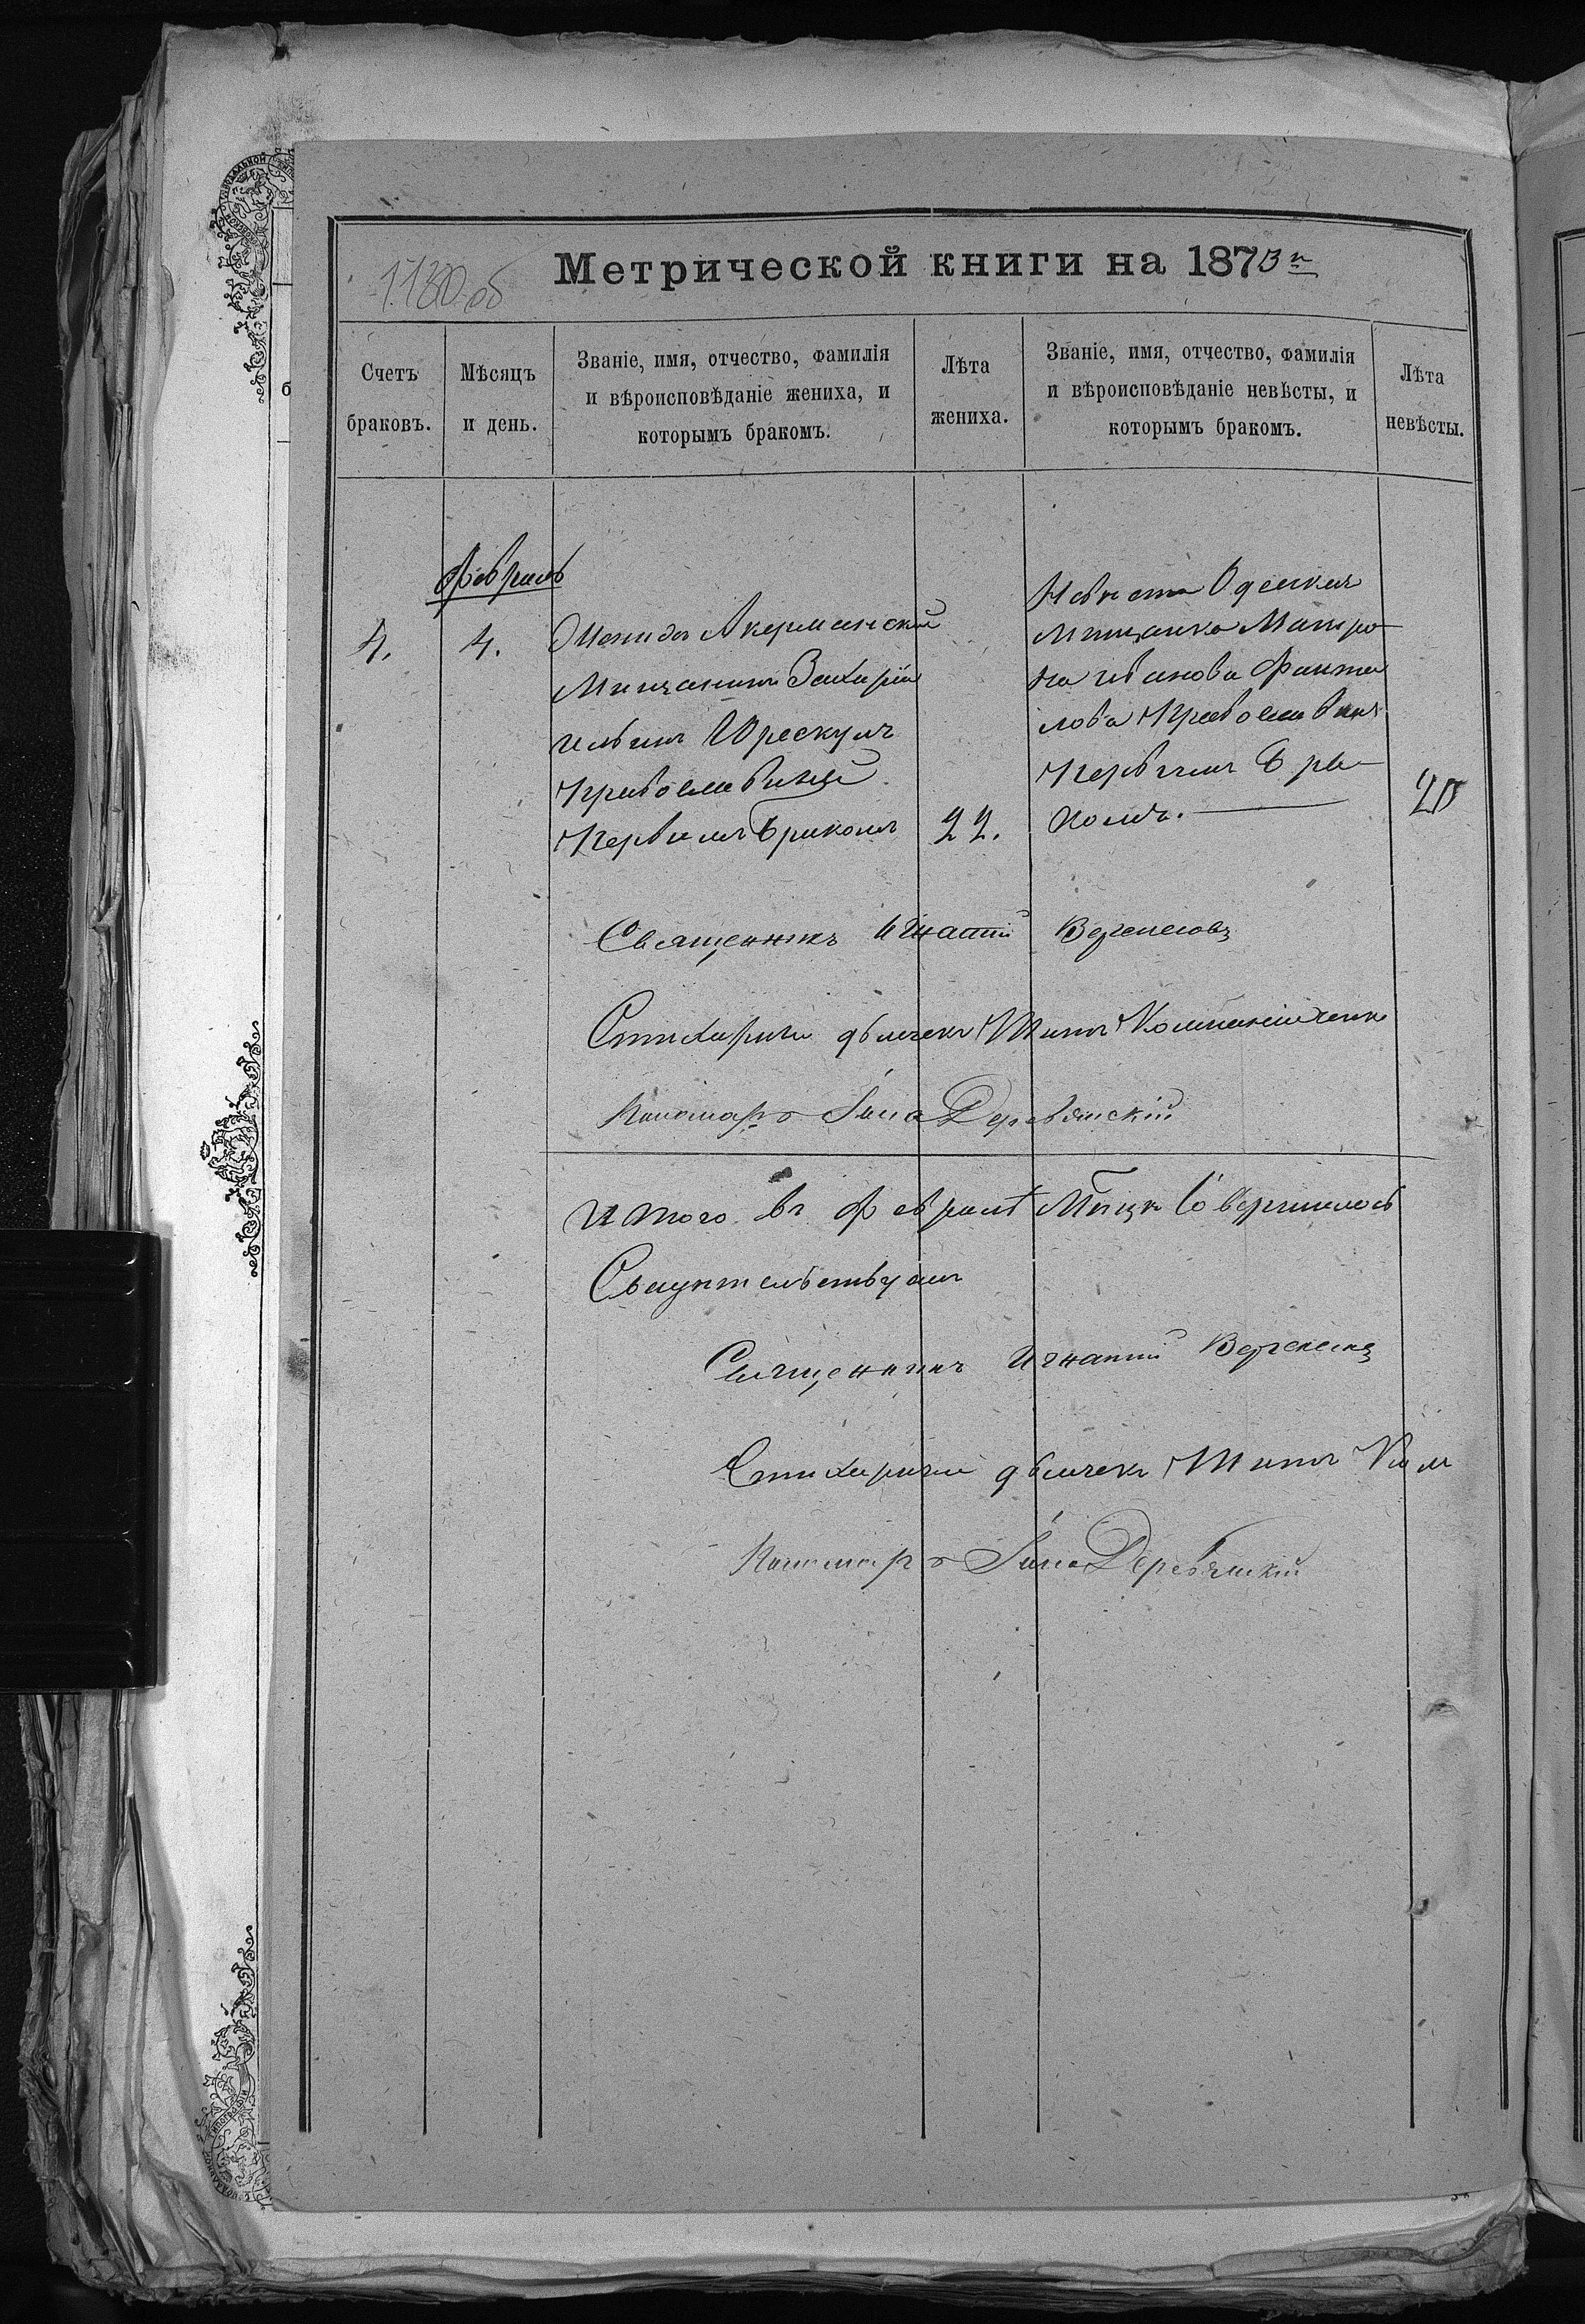 1130 об
Метрической книги на 1873 г
Счетъ браковъ.
Мѣсяцъ и день.
Званіе, имя, отчество, фамилія
и вѣроисповѣданіе жениха, и
которымъ бракомъ.
Лѣта жениха.
Званіе, имя, отчество, фамилія
и вѣроисповѣданіе невѣсты, и
которымъ бракомъ.
Лѣта невѣсты.
Февраль
4.
4.
Акерманский
Мищанинъ Захарій
Ильинъ Юрескулъ
Православный
Первымъ бракомъ
22.
Невѣста Одеская
Мищанка Матро
на Иванова Фанта
лова Православная
Первымъ Бра
комъ.
20
Священникъ Игнатій
Стихарный дьячекъ Титъ
Пономарь Іона Деревянскій
Итого въ Февралѣ Мѣсяцѣ Совершилось
Священникъ Игнатій
Стихарный дьячекъ Титъ Ком
Пономарь Іона Деревянскій